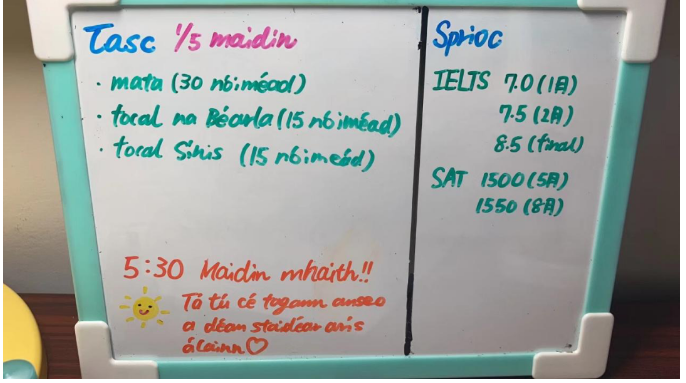 Tasc 1/5 maidin
· mata (30 nóiméad)
· focal na Béarla (15 nóiméad)
· focal Sínis (15 nóiméad)
5:30 Maidin mhaith!!
Tá tú cé tagann anseo
a déan staidéar arís
álainn♡
Sprioc
IELTS 7.0 (1月)
7.5 (2月)
8.5 (final)
SAT 1500 (5月)
1550 (8月)